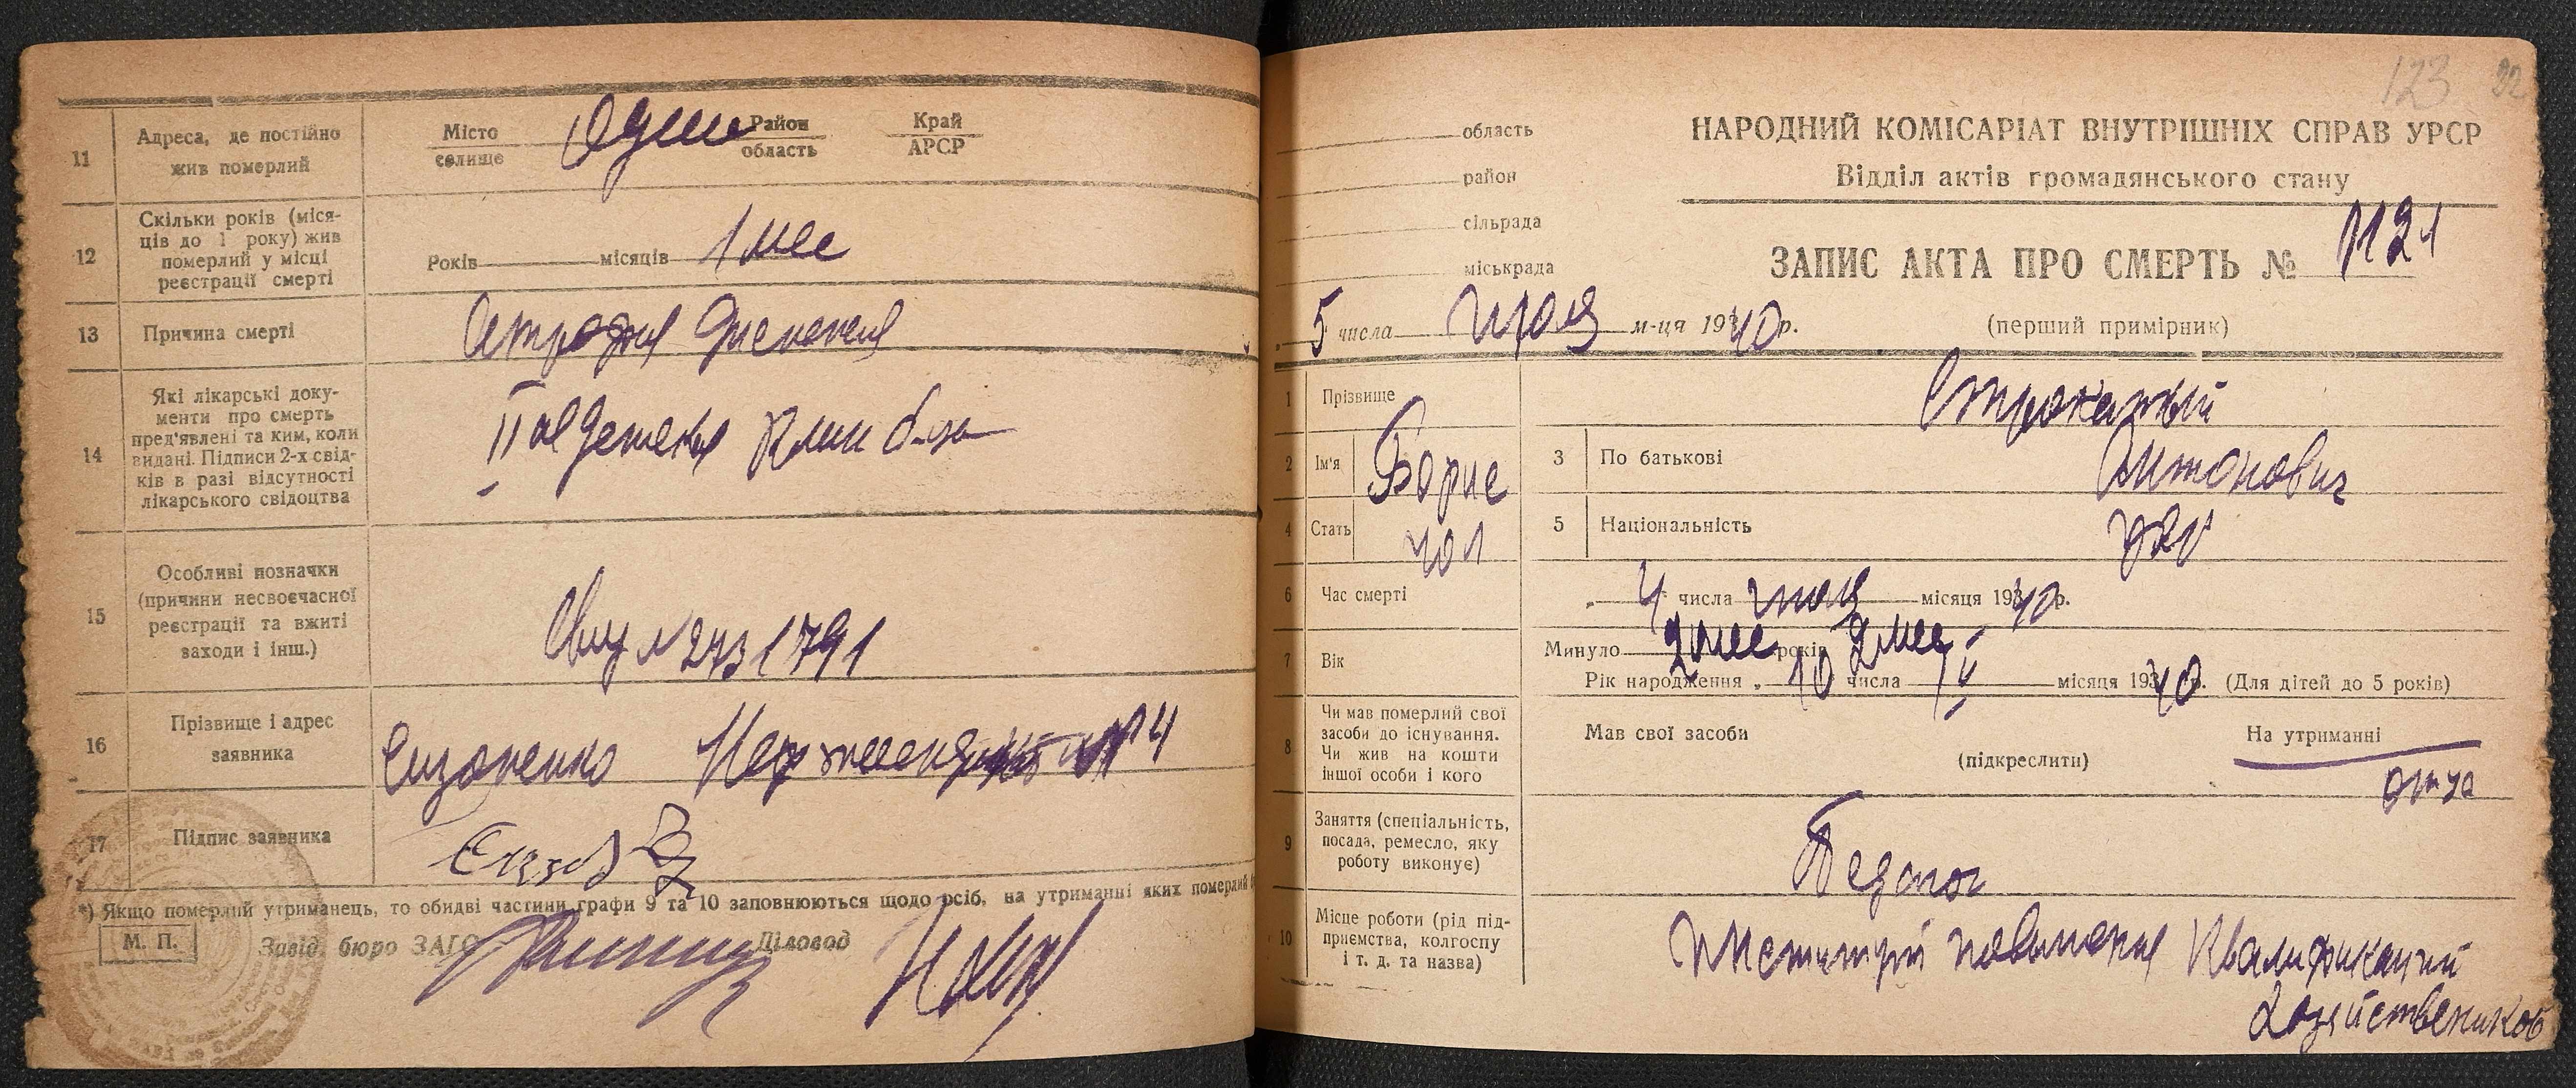 11
Адреса, де постійно
жив померлий
Місто
селище
Район
область
Край
АРСР
12
Скільки років (міся-
ців до 1 року) жив
померлий у місці
реєстрації смерті
Років
місяців
1 мес
13
Причина смерті
14
Які лікарські доку-
менти про смерть
пред'явлені та ким, коли
видані. Підписи 2-х свід-
ків в разі відсутності
лікарського свідоцтва
15
Особливі позначки
(причини несвоєчасної
реєстрації та вжиті
заходи і інш.)
16
Прізвище і адрес
заявника
17
Підпис заявника
*) Якщо померлий утриманець, то обидві частини графи 9 та 10 заповнюються щодо осіб, на утриманні яких померлий
М. П.
Завід. бюро ЗАГС
Діловод
123
область
район
сільрада
міськрада
НАРОДНИЙ КОМІСАРІАТ ВНУТРІШНІХ СПРАВ УРСР
Відділ актів громадянського стану
ЗАПИС АКТА ПРО СМЕРТЬ № 1121
5 числа июля м-ця 1940 р.
(перший примірник)
1
Прізвище
Строкатый
2
Ім'я
Борис
3
По батькові
Антонович
4
Стать
чол
5
Національність
укр
6
Час смерті
„ 4 числа июля місяця 1940 р.
7
Вік
Минуло 2 мес років 2 мес
Рік народження „ 10 числа IV місяця 1940 р. (Для дітей до 5 років)
8
Чи мав померлий свої
засоби до існування.
Чи жив на кошти
іншої особи і кого
Мав свої засоби
(підкреслити)
На утриманні
отца
9
Заняття (спеціальність,
посада, ремесло, яку
роботу виконує)
Педагог
10
Місце роботи (рід під-
приємства, колгоспу
і т. д. та назва)
Квалификации
Хозяйствеников